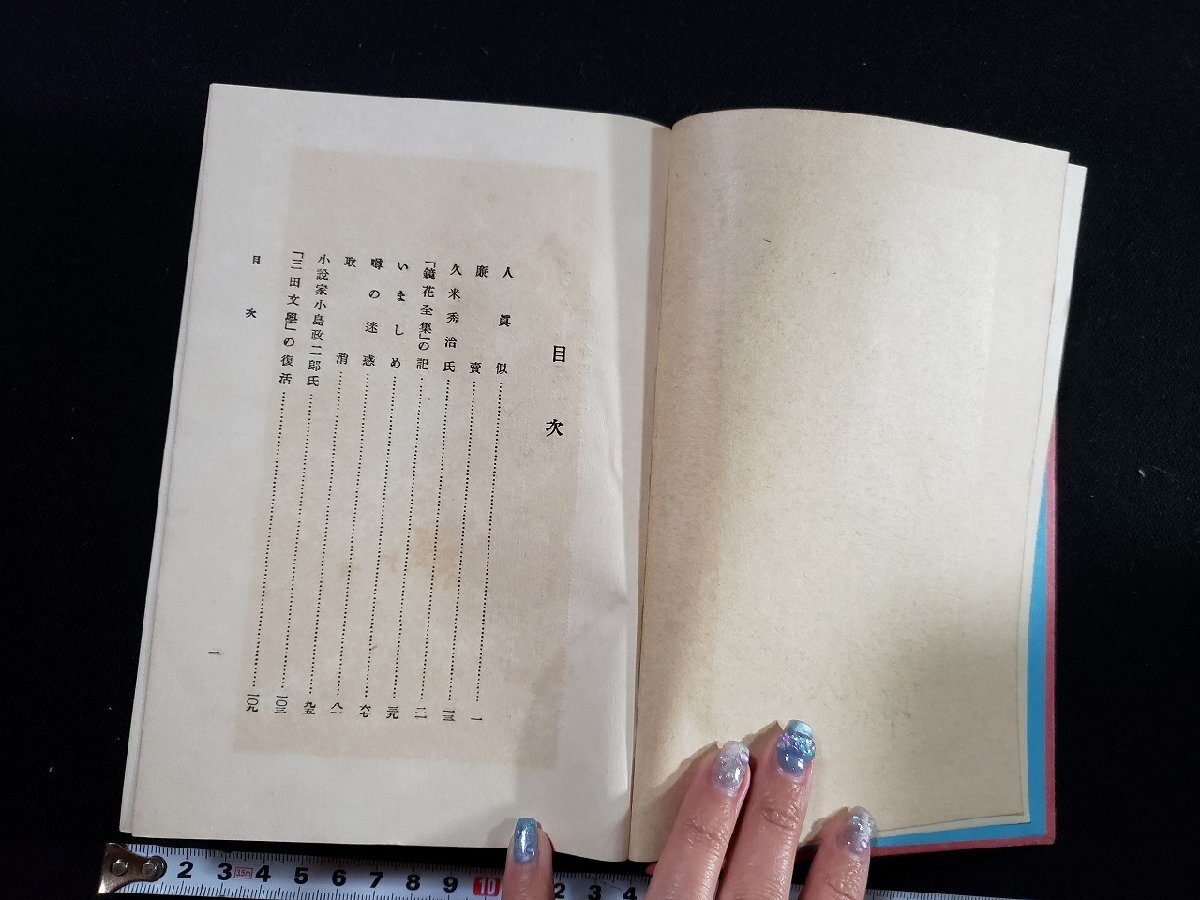 目次
人眞似……一
廉賣……一三
久米秀治氏……二一
「鏡花全集」の記……三九
いましめ……六七
噂の迷惑……八一
取消……九五
小說家小島政二郎氏……一〇三
「三田文學」の復活……一〇九
目次
一
2 3 3.5m 4 5 6 7 8 9 10 2 3 4